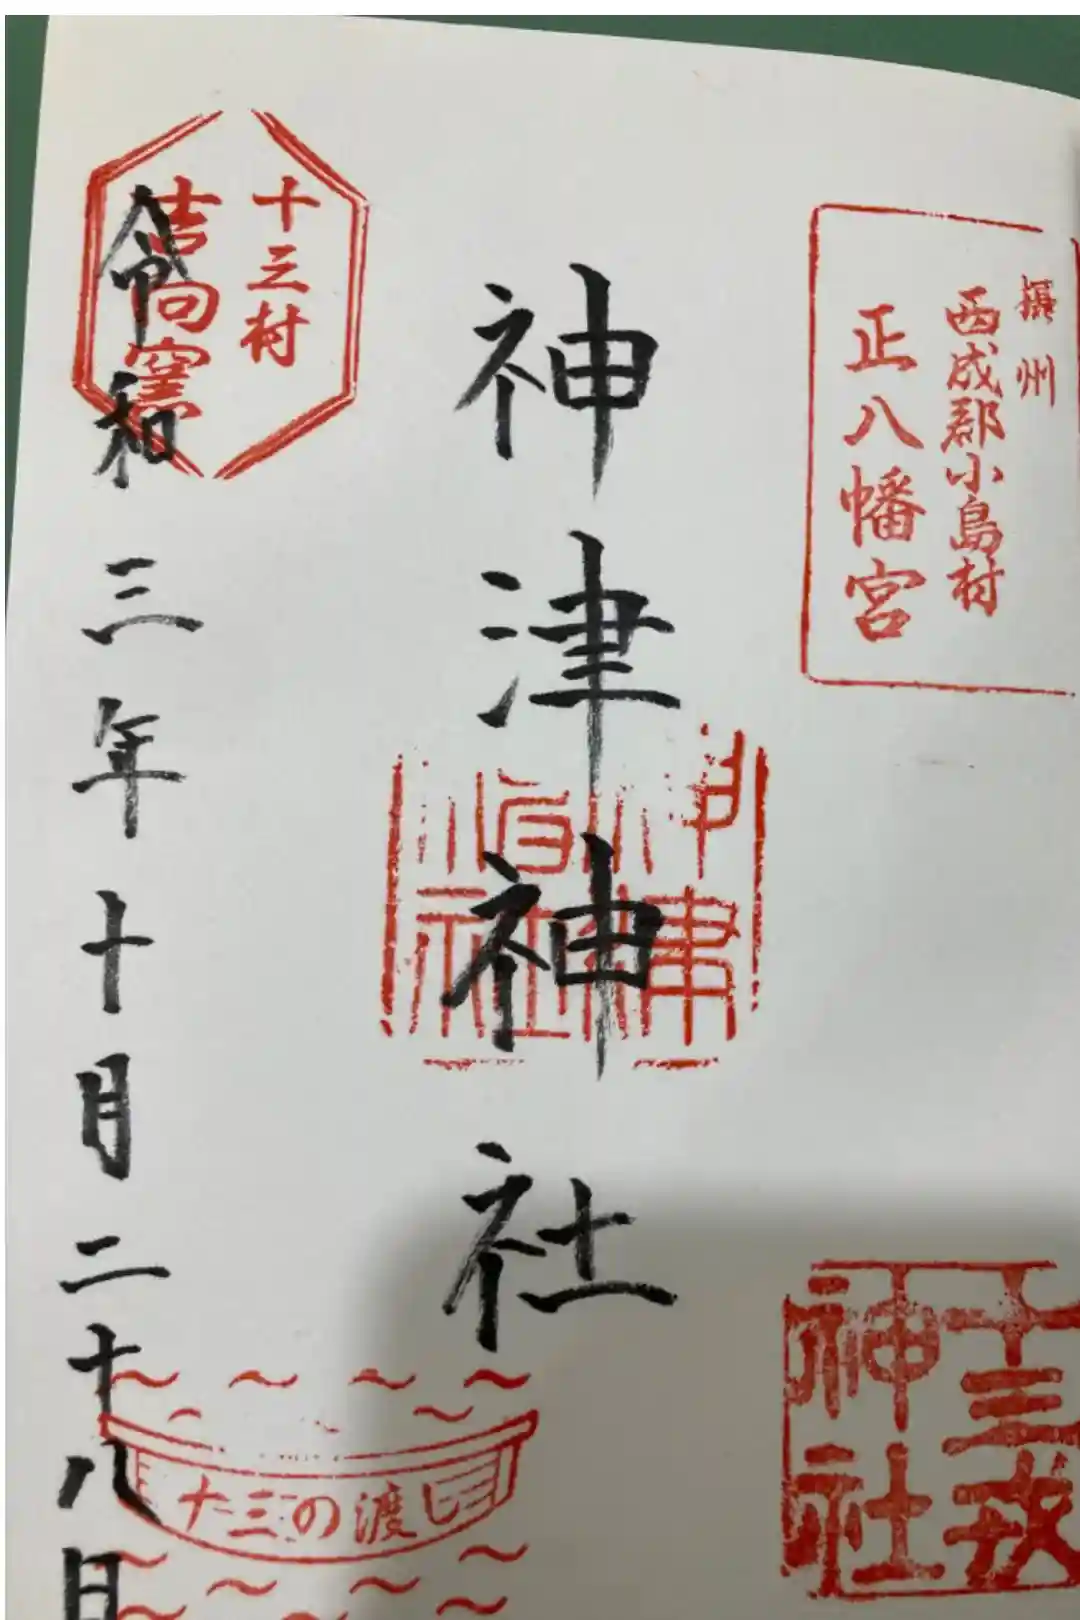 摂州
西成郡小島村
正八幡宮
十三戎
神社
神津神社
神津
神社
十三村
吉向窯
令和三年十月二十八日
十三の渡し